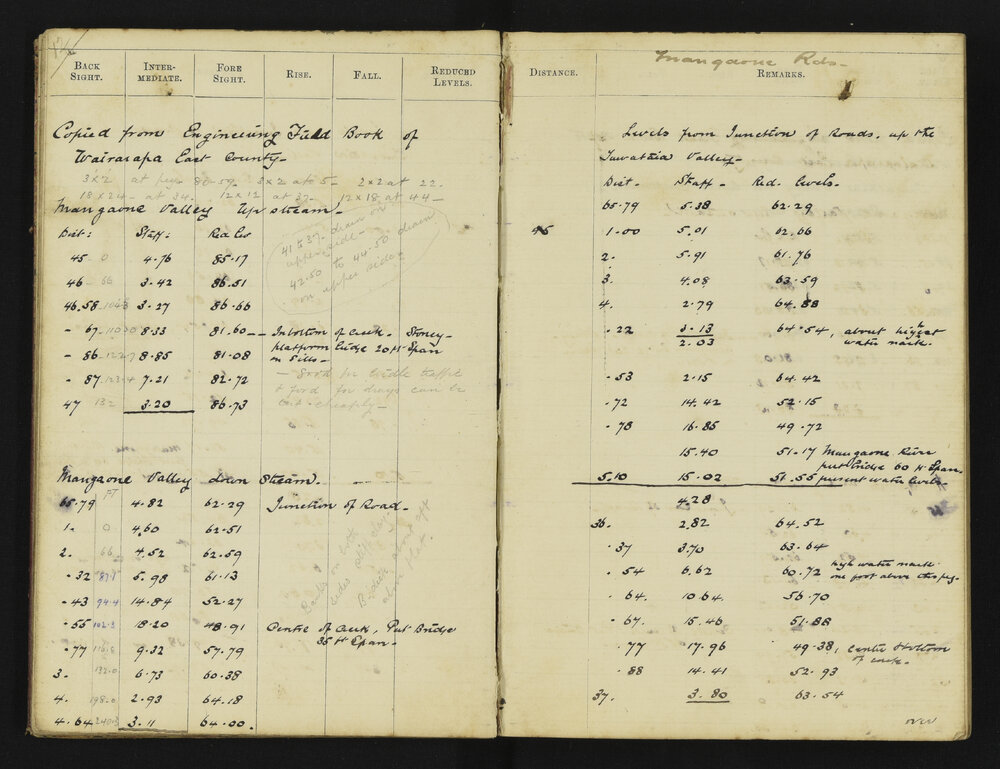 BACK SIGHT. INTER-MEDIATE. FORE SIGHT. RISE. FALL. REDUCED LEVELS.
Copied from Engineering Field Book of
Wairarapa East County-
3x2 at peg 80.59. 3x2 at 5- 2x2 at 22.
18x24- at 34. 12x12 at 37- 12x18 at 44-
Mangaone Valley Up stream-
Dist: Staff: Red Lev
41 to 37. drain on
upper side-
42.50 to 44.50 drain
on upper side
45 0 4.76 85.17
46 66 3.42 86.51
46.58 3.27 86.66
- 67 8.33 81.60 - In bottom of creek. Stoney-
platform bridge 20 ft Span
on Sills-
- 86 8.85 81.08
- Good for bridle traffic
& ford for drays can be
cut cheaply-
- 87 7.21 82.72
47 132 3.20 86.73
Mangaone Valley down Stream.
FT
65.79 4.82 62.29 Junction of Road.
1- 0 4.60 62.51
2. 66 4.52 62.59
- 32 87.1 5.98 61.13
- 43 94.4 14.84 52.27
- 55 102.3 18.20 48.91 Centre of Creek, Put Bridge
35 ft Span-
- 77 116.8 9.32 57.79
3. 132.0 6.73 60.38
4. 198.0 2.93 64.18
4.64 3.11 64.00.
Banks on both
sides
Bridge about
above flat.
Mangaone Rds-
DISTANCE. REMARKS.
Levels from Junction of Roads, up the
Valley-
Dist- Staff- Red. levels-
65.79 5.38 62.29
46 1.00 5.01 62.66
2. 5.91 61.76
3. 4.08 63.59
4. 2.79 64.88
. 22 3.13 64.54, about highest
water mark.
2.03
. 53 2.15 64.42
. 72 14.42 52.15
. 78 16.85 49.72
15.40 51.17 Mangaone River
put bridge 60 ft Span
5.10 15.02 51.55 present water level-
4.28
36. 2.82 64.52
. 37 3.70 63.64
. 54 6.62 60.72 high water mark
one foot above this peg-
. 64. 10.64 56.70
. 67. 15.46 51.88
. 77 17.96 49.38, centre & bottom
of creek-
. 88 14.41 52.93
37. 3.80 63.54